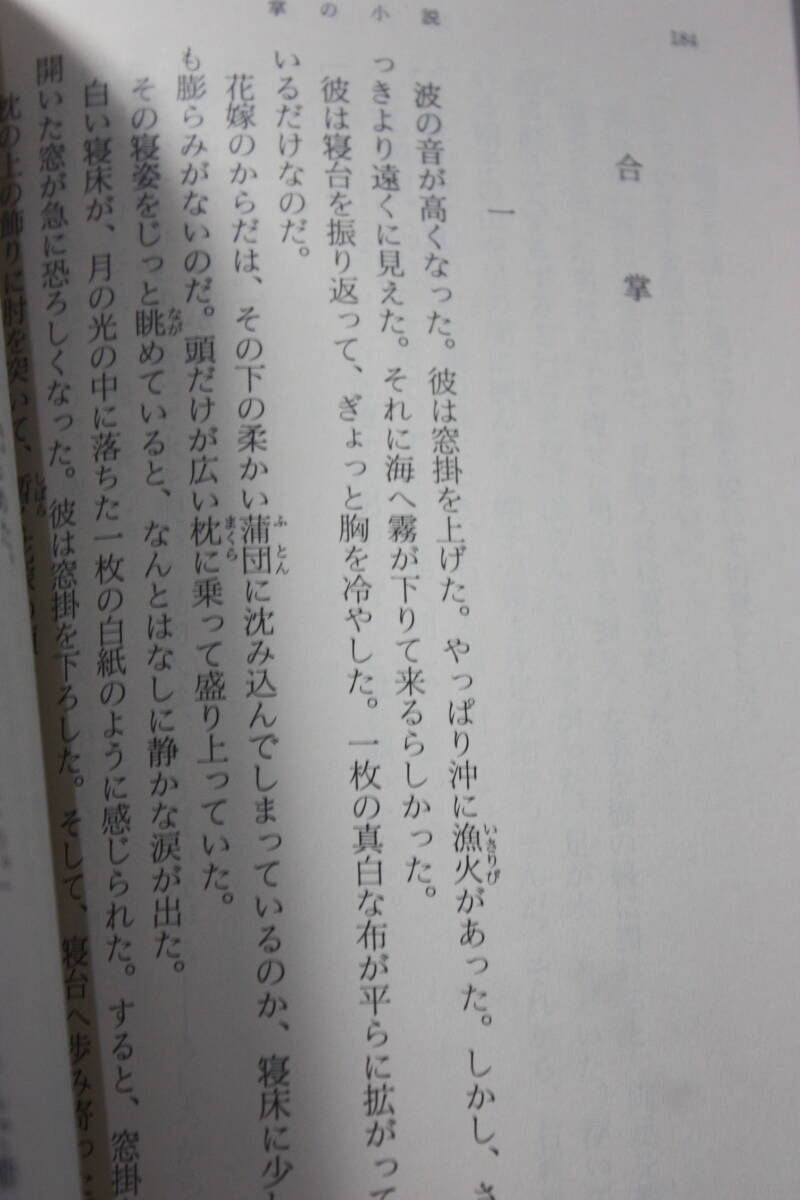 184
掌の小説
合掌
一
波の音が高くなった。彼は窓掛を上げた。やっぱり沖に漁火があった。しかし、さ
っきより遠くに見えた。それに海へ霧が下りて来るらしかった。
彼は寝台を振り返って、ぎょっと胸を冷やした。一枚の真白な布が平らに拡がって
いるだけなのだ。
花嫁のからだは、その下の柔かい蒲団に沈み込んでしまっているのか、寝床に少し
も膨らみがないのだ。頭だけが広い枕に乗って盛り上っていた。
その寝姿をじっと眺めていると、なんとはなしに静かな涙が出た。
白い寝床が、月の光の中に落ちた一枚の白紙のように感じられた。すると、窓掛
開いた窓が急に恐ろしくなった。彼は窓掛を下ろした。そして、寝台へ歩み寄っ
枕の上の飾りに肘を突いて、